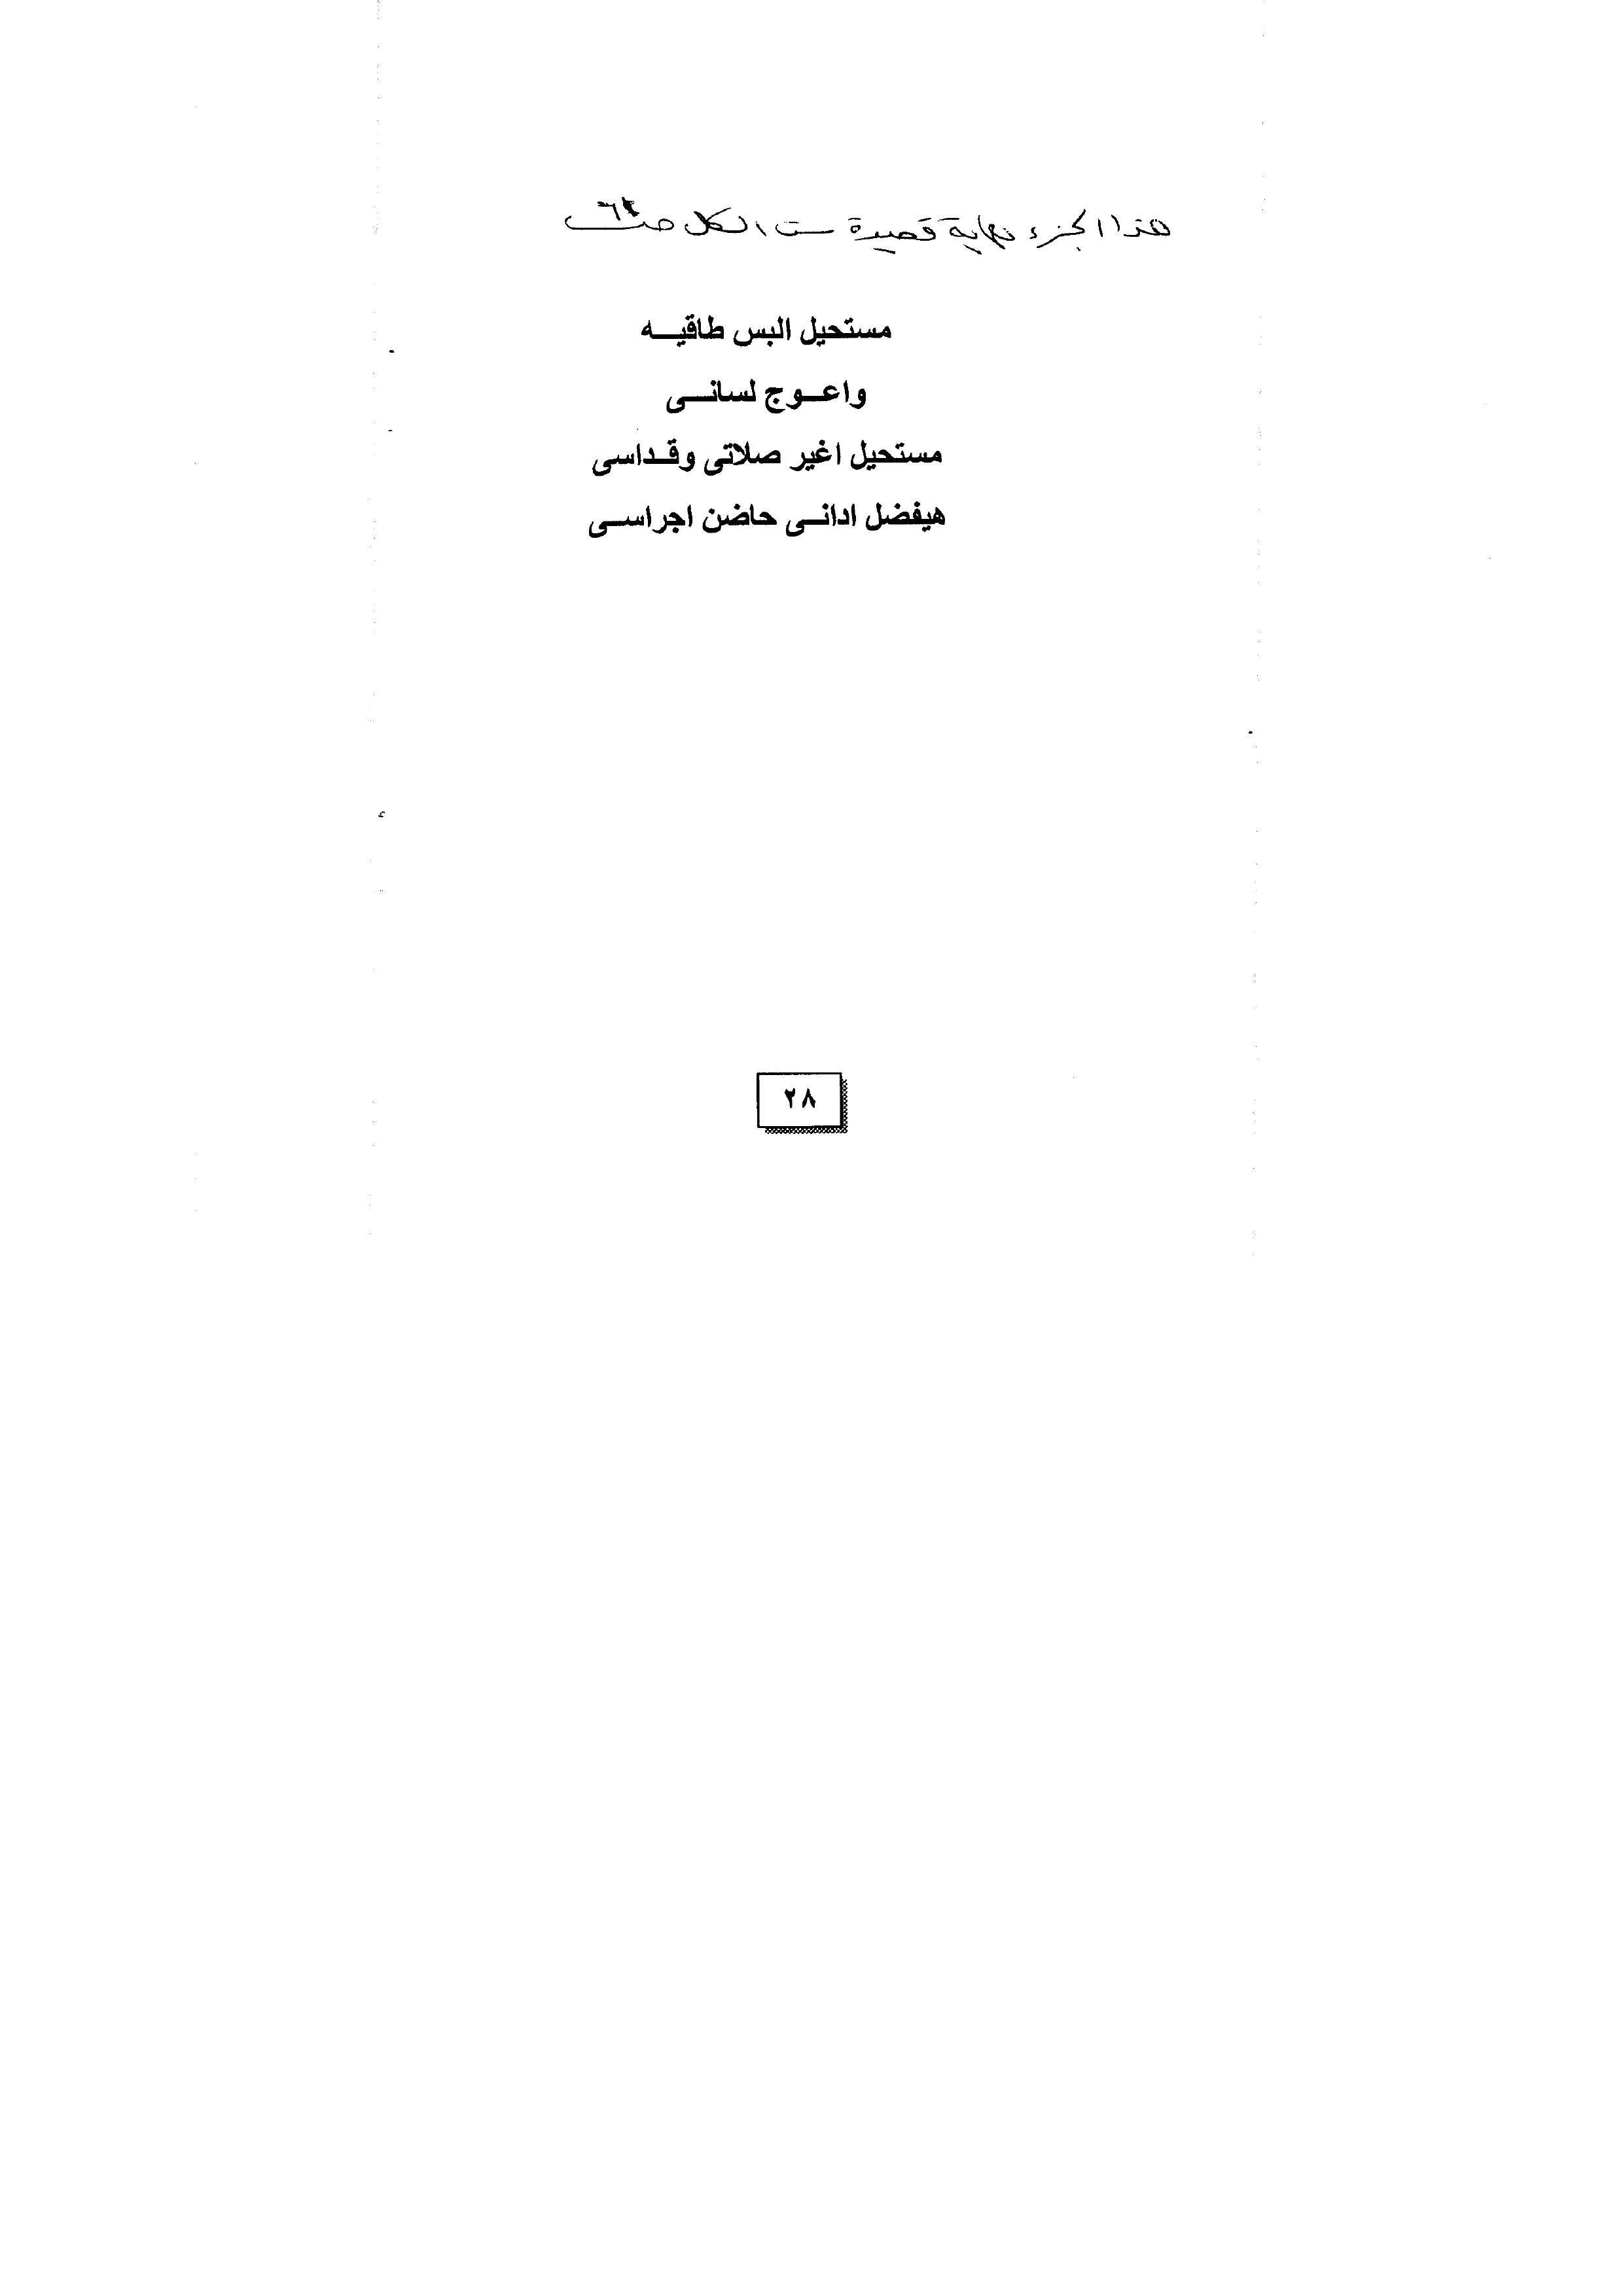 هذا الجزء نهاية قصيدة ست الكل صـ
مستحيل البس طاقيـــه
واعــوج لسانــى
مستحيل اغير صلاتى وقـداسى
هيفضل ادانــى حاضن اجراســى
٢٨